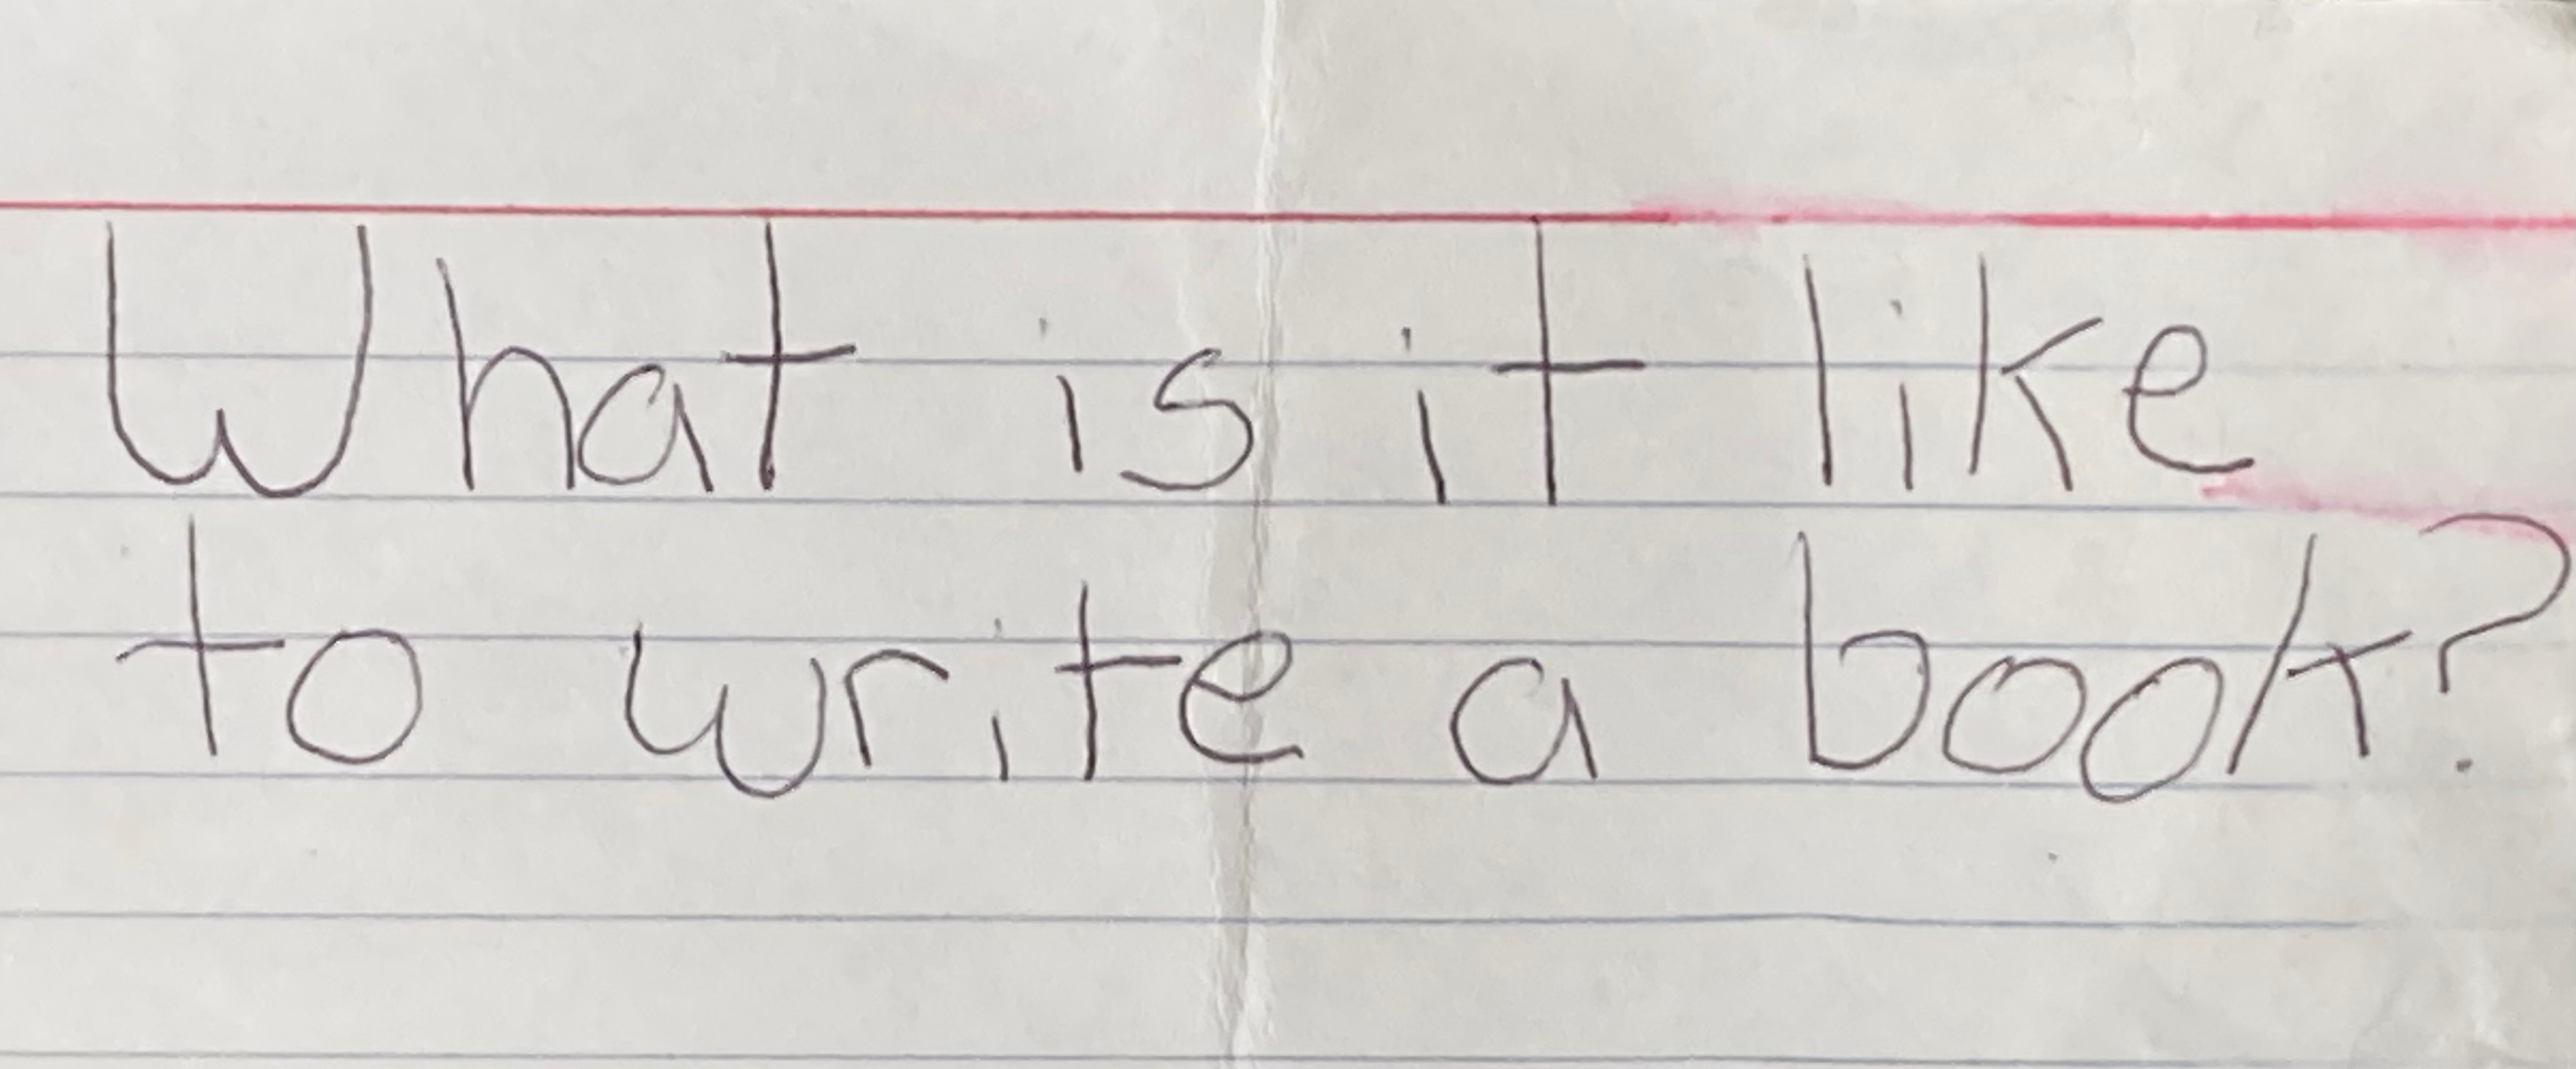 What is it like
to write a book?